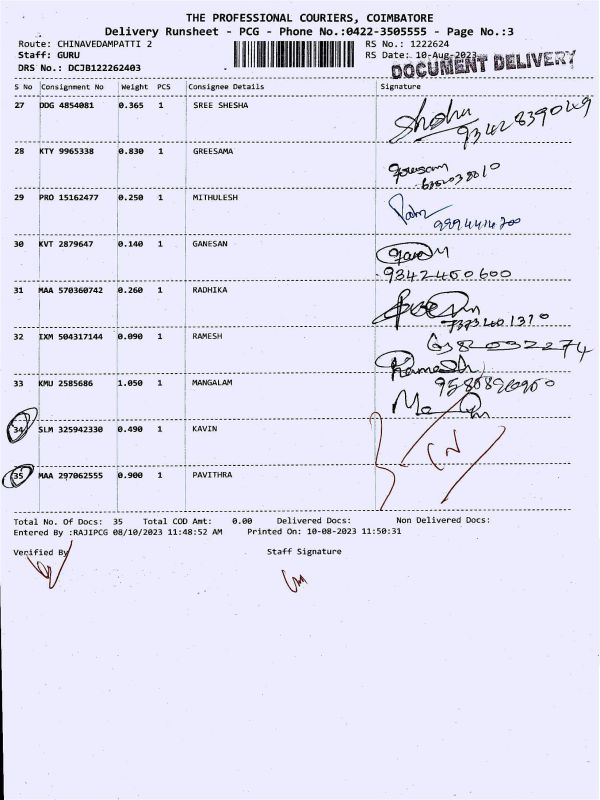 THE PROFESSIONAL COURIERS, COIMBATORE
Delivery Runsheet - PCG - Phone No.:0422-3505555 - Page No.:3
Route: CHINAVEDAMPATTI 2 RS No.: 1222624
Staff: GURU RS Date: 10-Aug-2023
DRS No.: DCJB122262403 DOCUMENT DELIVERY
S No Consignment No Weight PCS Consignee Details Signature
27 DDG 4854081 0.365 1 SREE SHESHA
Shesha
28 KTY 9965338 0.830 1 GREESAMA
29 PRO 15162477 0.250 1 MITHULESH
30 KVT 2879647 0.140 1 GANESAN
9342460600
31 MAA 570360742 0.260 1 RADHIKA
32 IXM 504317144 0.090 1 RAMESH
Ramesh
33 KMU 2585686 1.050 1 MANGALAM
34 SLM 325942330 0.490 1 KAVIN
35 MAA 297062555 0.900 1 PAVITHRA
Total No. Of Docs: 35 Total COD Amt: 0.00 Delivered Docs: Non Delivered Docs:
Entered By :RAJIPCG 08/10/2023 11:48:52 AM Printed On: 10-08-2023 11:50:31
Verified By Staff Signature